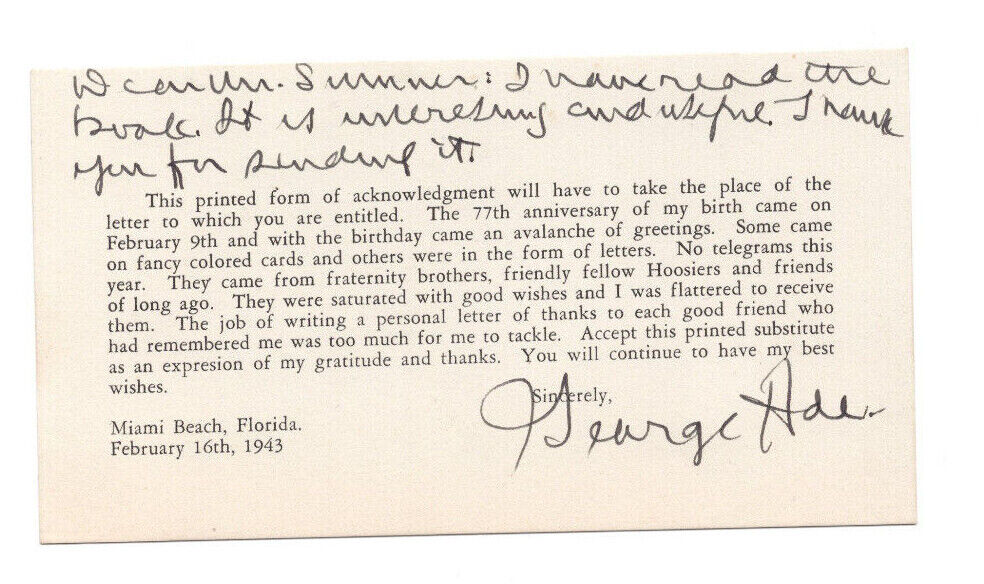 Dear Mr. Sumner: I have read the
book. It is interesting and useful. Thank
you for sending it.
This printed form of acknowledgment will have to take the place of the
letter to which you are entitled. The 77th anniversary of my birth came on
February 9th and with the birthday came an avalanche of greetings. Some came
on fancy colored cards and others were in the form of letters. No telegrams this
year. They came from fraternity brothers, friendly fellow Hoosiers and friends
of long ago. They were saturated with good wishes and I was flattered to receive
them. The job of writing a personal letter of thanks to each good friend who
had remembered me was too much for me to tackle. Accept this printed substitute
as an expresion of my gratitude and thanks. You will continue to have my best
wishes.
Sincerely,
George Ade.
Miami Beach, Florida.
February 16th, 1943